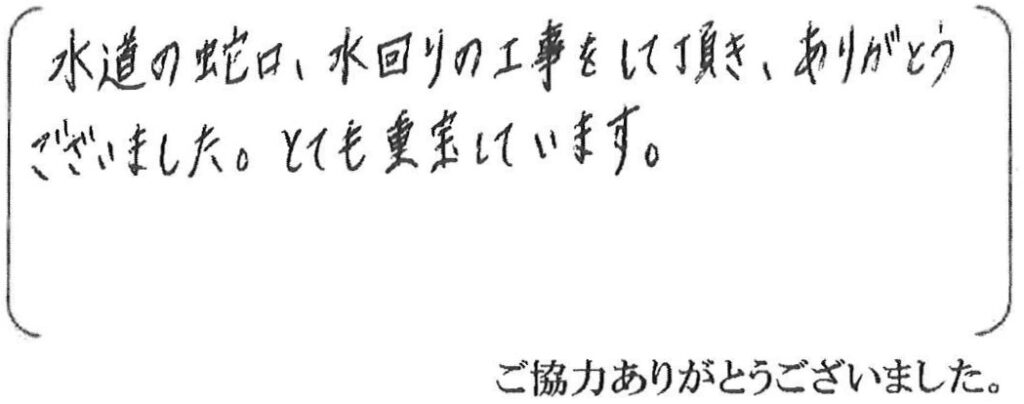 水道の蛇口、水回りの工事をして頂き、ありがとう
ございました。とても重宝しています。
ご協力ありがとうございました。